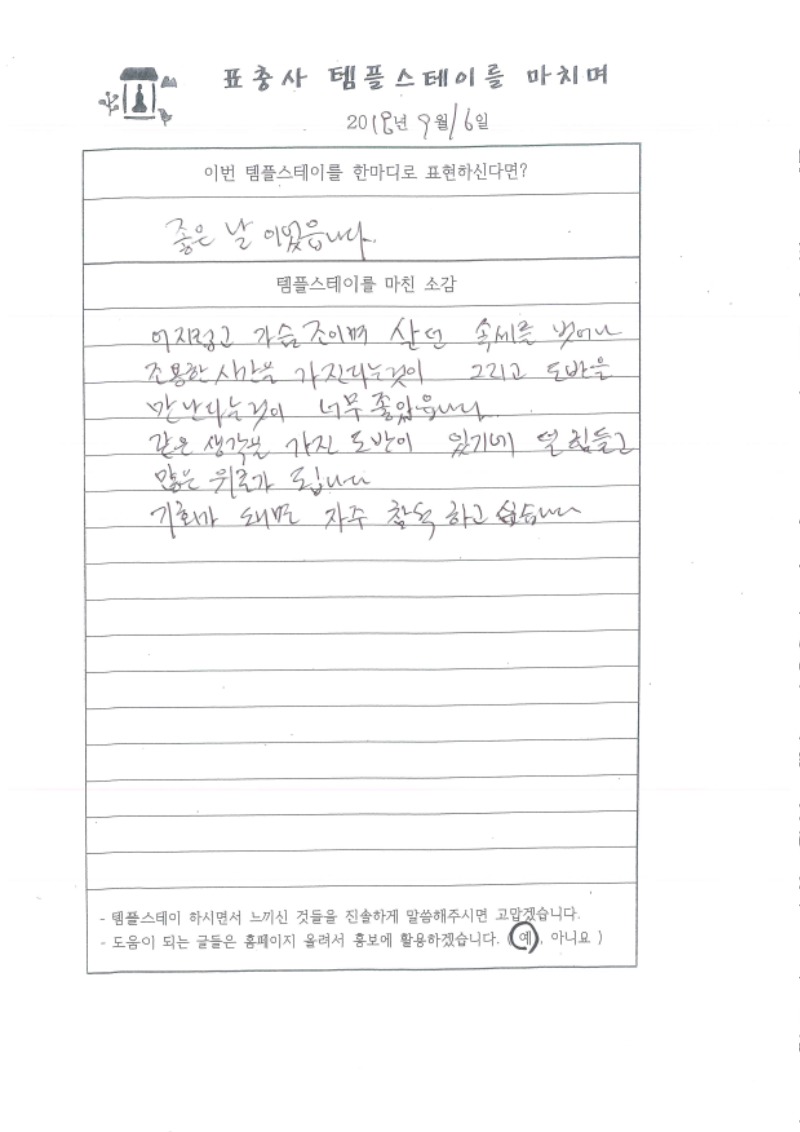 표충사 템플스테이를 마치며
2018년 9월 16일
이번 템플스테이를 한마디로 표현하신다면?
좋은 날 이었읍니다.
템플스테이를 마친 소감
어지럽고 가슴 조이며 살던 속세를 벗어나
조용한 시간을 가진다는것이 그리고 도반을
만난다는것이 너무 좋았읍니다.
같은 생각을 가진 도반이 있기에 덜 힘들고
많은 위로가 됩니다
기회가 돼면 자주 참석 하고 싶습니다
- 템플스테이 하시면서 느끼신 것들을 진솔하게 말씀해주시면 고맙겠습니다.
- 도움이 되는 글들은 홈페이지 올려서 홍보에 활용하겠습니다. ( 예 , 아니요 )